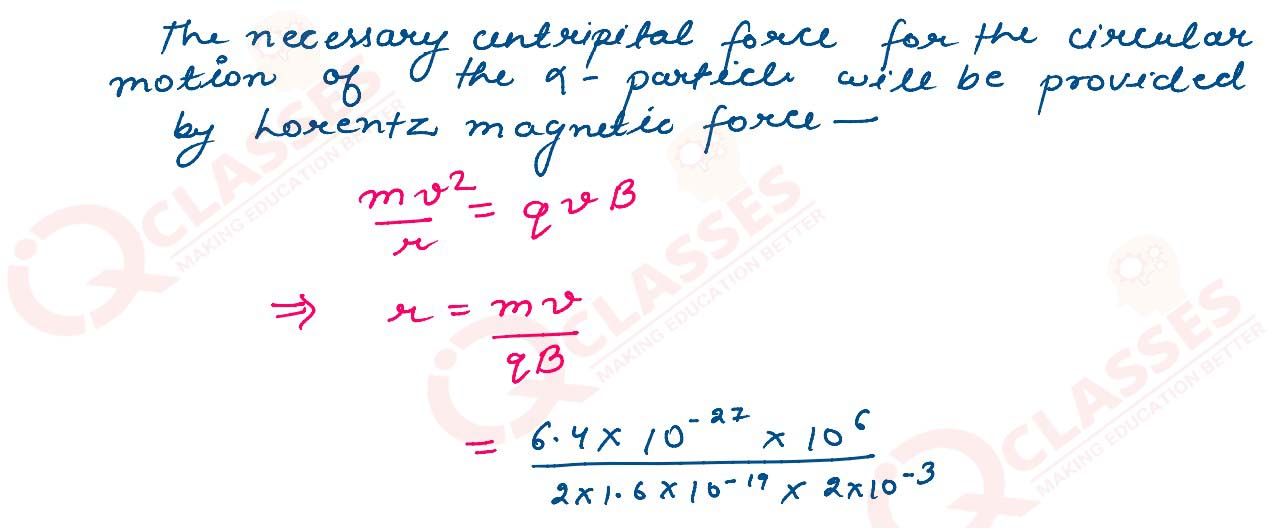 The necessary centripital force for the circular
motion of the α - particle will be provided
by Lorentz magnetic force —
mv²/r = qvB
⇒ r = mv/qB
= 6.4 × 10⁻²⁷ × 10⁶ / 2 × 1.6 × 10⁻¹⁹ × 2 × 10⁻³
iQ CLASSES
MAKING EDUCATION BETTER
iQ CLASSES
MAKING EDUCATION BETTER
iQ CLASSES
MAKING EDUCATION BETTER